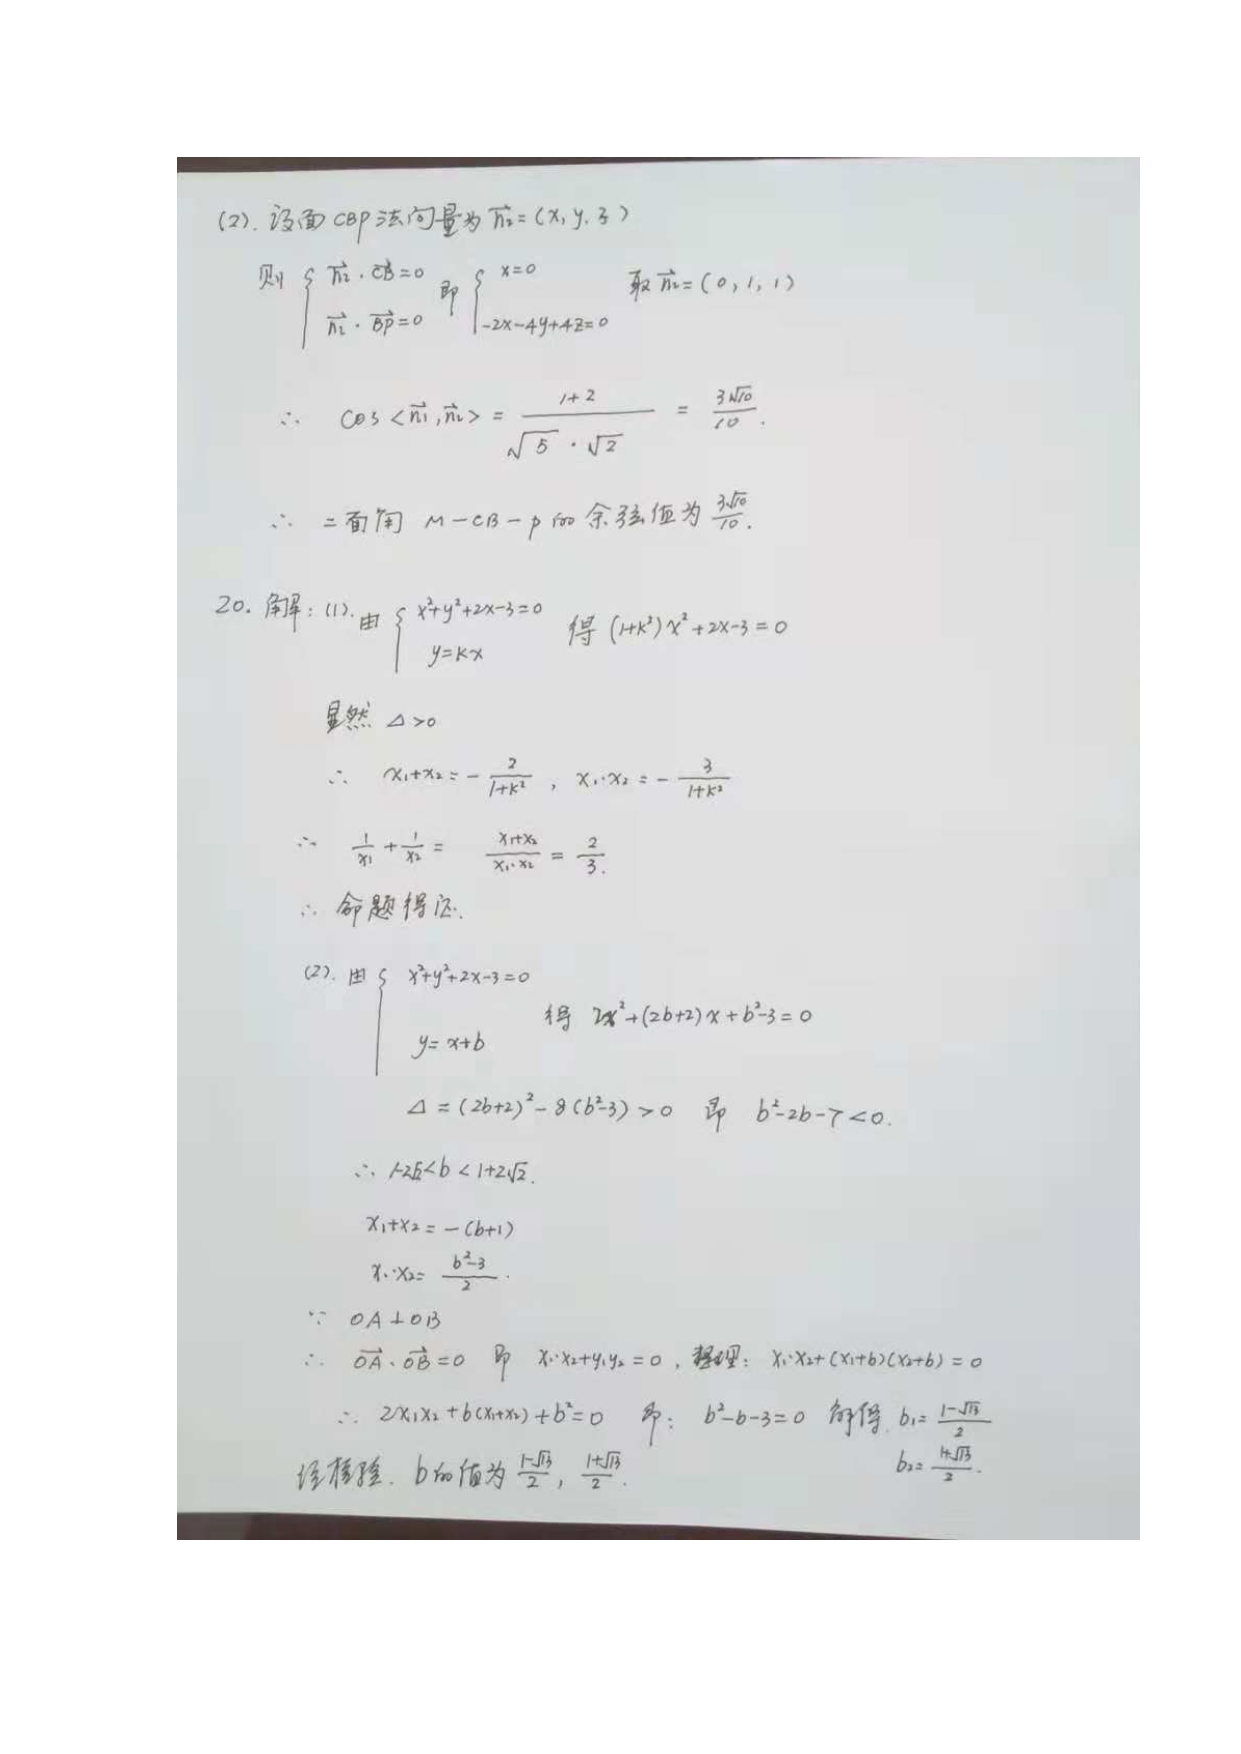 (2). 设面CBP法向量为 n₂⃗=(x, y, z)
则 { n₂⃗·CB⃗=0 即 { x=0 取 n₂⃗=(0, 1, 1)
n₂⃗·BP⃗=0 -2x-4y+4z=0
∴ cos<n₁⃗, n₂⃗> = (1+2)/(√5·√2) = 3√10/10.
∴ 二面角 M-CB-P 的余弦值为 3√10/10.
20. 解: (1). 由 { x²+y²+2x-3=0 得 (1+k²)x²+2x-3=0
y=kx
显然 Δ>0
∴ x₁+x₂=-2/(1+k²), x₁·x₂=-3/(1+k²)
∴ 1/x₁+1/x₂= (x₁+x₂)/(x₁·x₂) = 2/3.
∴ 命题得证.
(2). 由 { x²+y²+2x-3=0 得 2x²+(2b+2)x+b²-3=0
y=x+b
Δ=(2b+2)²-8(b²-3)>0 即 b²-2b-7<0.
∴ 1-2√2<b<1+2√2.
x₁+x₂=-(b+1)
x₁·x₂=(b²-3)/2.
∵ OA⊥OB
∴ OA⃗·OB⃗=0 即 x₁·x₂+y₁y₂=0, 整理: x₁·x₂+(x₁+b)(x₂+b)=0
∴ 2x₁x₂+b(x₁+x₂)+b²=0 即: b²-b-3=0 解得. b₁=(1-√13)/2
b₂=(1+√13)/2.
经检验. b的值为 (1-√13)/2, (1+√13)/2.